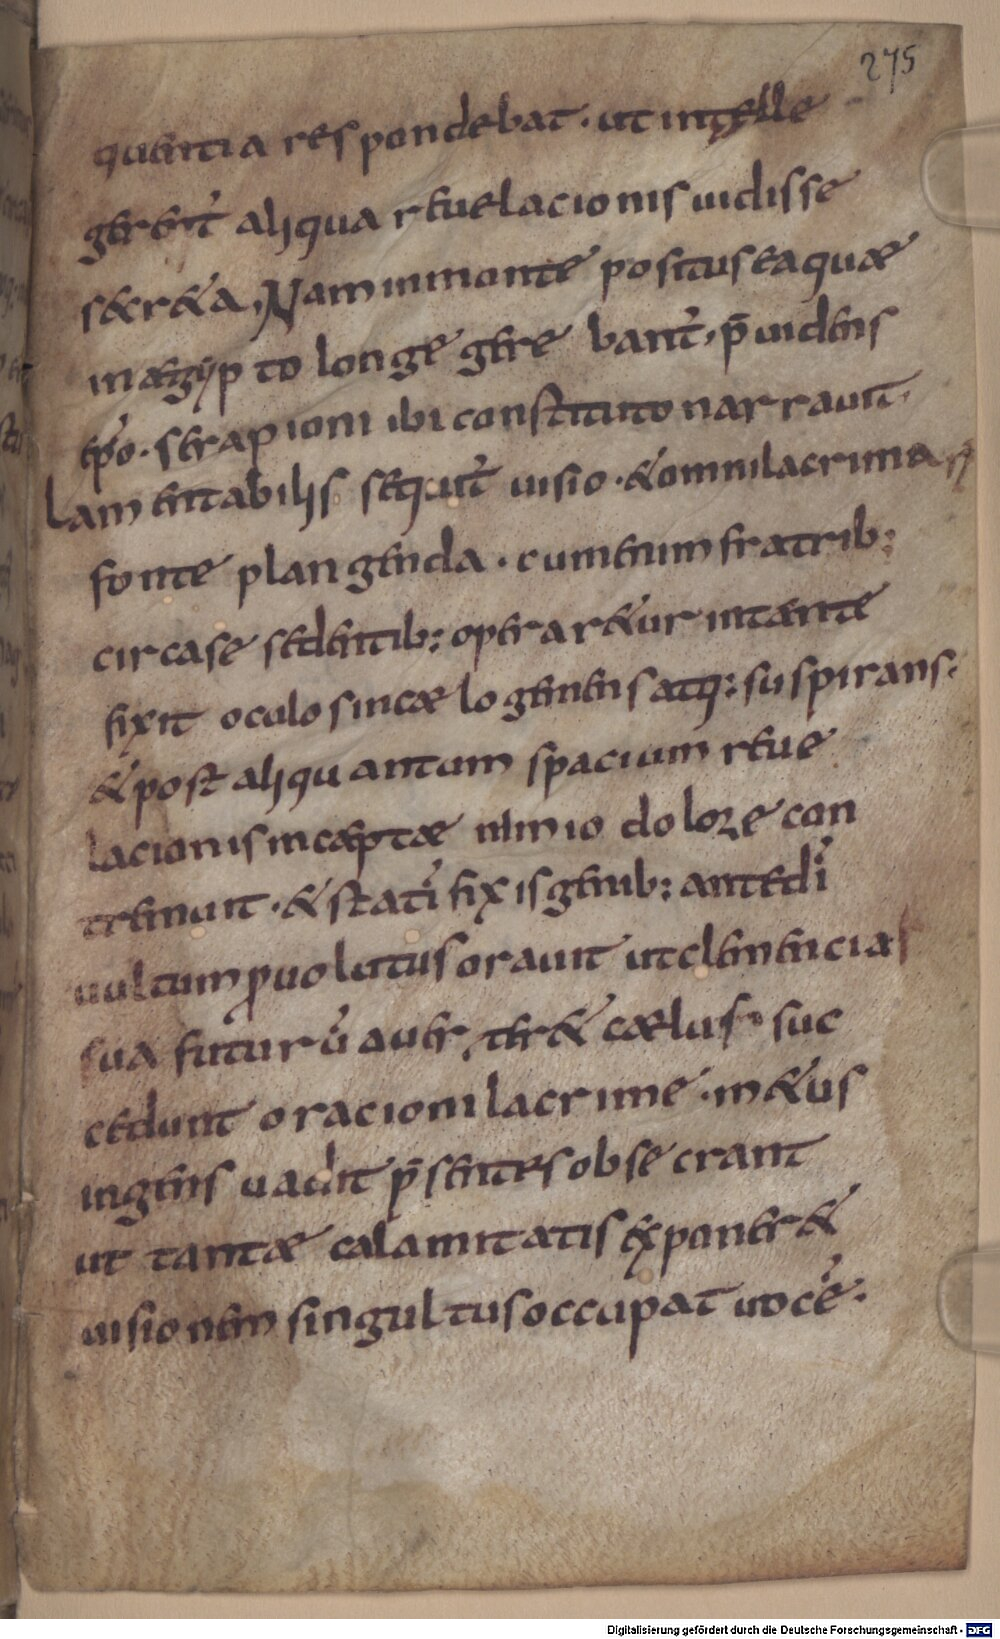 275
quentia respondebat · ut intelle
gerent̉ aliqua reuelacionis uidisse
s&cr&a, Nam inmonte positus eaquæ
inægypto longe gere bant̉, p̄uidens
ep̄o · serapioni ibi constituto narrauit ·
Lamentabilis sequit̉ uisio · & omni lacrimarū
fonte plangenda · cumenim fratrib:
circase sedentib: operar&ur intænte
fixit oculos incælo gemens atq: suspirans ·
& post aliquantum spacium reue
lacionis incæptæ nimio dolore con
tremuit · & stati fixis genib: antedi
uultum puolutus orauit utclemencias
sua futurū auerter& cælus suc
cedunt oracioni lacrime · m&us
ingens uadit p̄sentes obsecrant
ut tantæ calamitatis exponer&
uisionem singultus occupat uocē ·
Digitalisierung gefördert durch die Deutsche Forschungsgemeinschaft - DFG